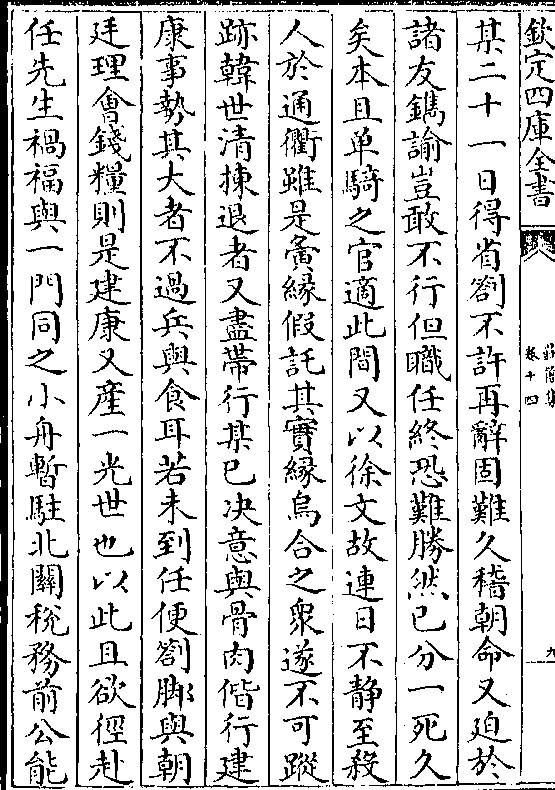 欽定四庫全書
莊簡集
卷十四
九
某二十一日得省劄不許再辭固難久稽朝命又迫於
諸友鐫諭豈敢不行但職任終恐難勝然已分一死久
矣本且单騎之官適此間又以徐文故連日不静至殺
人於通衢雖是夤縁假託其實縁烏合之衆遂不可蹤
跡韓世清揀退者又盡帶行某已决意與骨肉偕行建
康事勢其大者不過兵與食耳若未到任便劄脚與朝
廷理會錢糧則是建康又産一光世也以此且欲徑赴
任先生禍福與一門同之小舟暫駐北關税務前公能